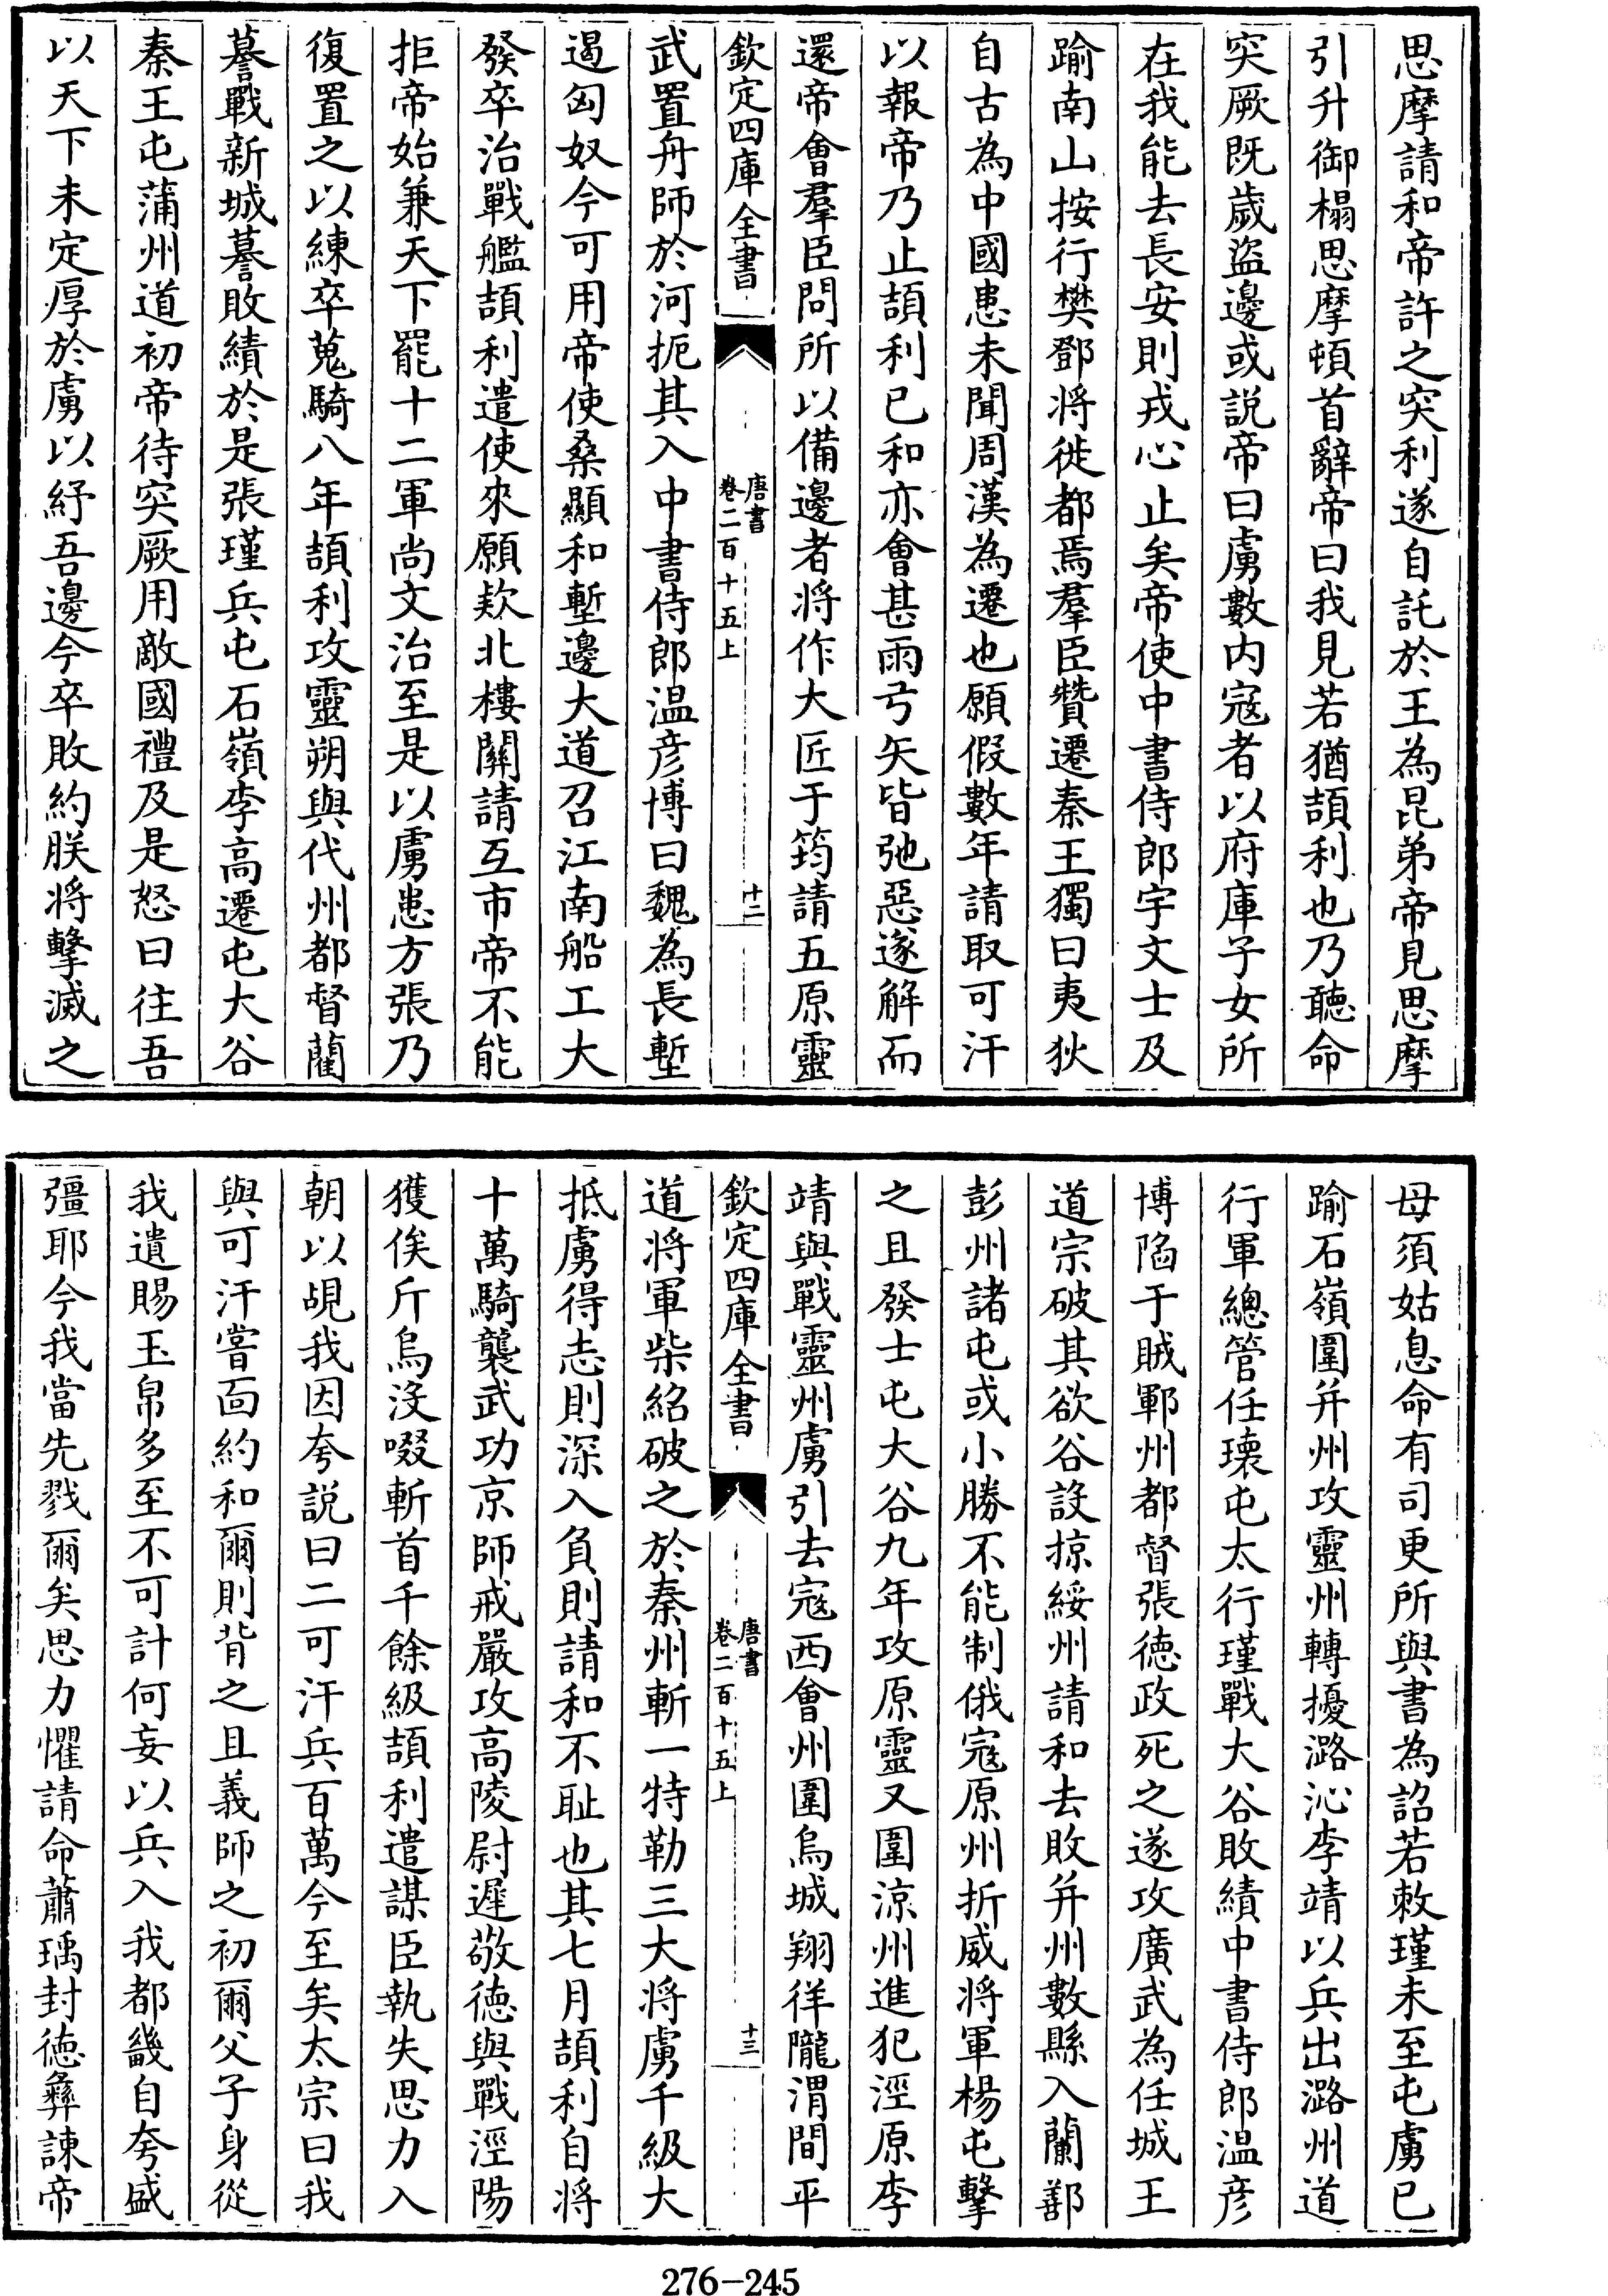 思摩請和帝許之突利遂自託於王為昆弟帝見思摩
引升御榻思摩頓首辭帝曰我見若猶頡利也乃聽命
突厥既歲盜邊或説帝曰虜數内寇者以府庫子女所
在我能去長安則戎心止矣帝使中書侍郎宇文士及
踰南山按行樊鄧将徙都焉羣臣贊遷秦王獨曰夷狄
自古為中國患未聞周漢為遷也願假數年請取可汗
以報帝乃止頡利已和亦會甚雨弓矢皆弛惡遂解而
還帝會羣臣問所以備邊者将作大匠于筠請五原靈
欽定四庫全書
唐書
卷二百十五上
十二
武置舟師於河扼其入中書侍郎温彦博曰魏為長塹
遏匈奴今可用帝使桑顯和塹邊大道召江南船工大
發卒治戰艦頡利遣使來願欵北樓關請互市帝不能
拒帝始兼天下罷十二軍尚文治至是以虜患方張乃
復置之以練卒蒐騎八年頡利攻靈朔與代州都督藺
謩戰新城謩敗績於是張瑾兵屯石嶺李高遷屯大谷
秦王屯蒲州道初帝待突厥用敵國禮及是怒曰往吾
以天下未定厚於虜以紓吾邊今卒敗約朕将擊滅之
母須姑息命有司更所與書為詔若敕瑾未至屯虜已
踰石嶺圍并州攻靈州轉擾潞沁李靖以兵出潞州道
行軍總管任瓌屯太行瑾戰大谷敗績中書侍郎温彦
博陷于賊鄆州都督張德政死之遂攻廣武為任城王
道宗破其欲谷設掠綏州請和去敗并州數縣入蘭鄯
彭州諸屯或小勝不能制俄寇原州折威将軍楊屯擊
之且發士屯大谷九年攻原靈又圍涼州進犯涇原李
靖與戰靈州虜引去寇西會州圍烏城翔徉隴渭間平
欽定四庫全書
唐書
卷二百十五上
十三
道将軍柴紹破之於秦州斬一特勒三大将虜千級大
抵虜得志則深入負則請和不耻也其七月頡利自将
十萬騎襲武功京師戒嚴攻高陵尉遲敬德與戰涇陽
獲俟斤烏沒啜斬首千餘級頡利遣謀臣執失思力入
朝以覘我因夸説曰二可汗兵百萬今至矣太宗曰我
與可汗嘗靣約和爾則背之且義師之初爾父子身從
我遺賜玉帛多至不可計何妄以兵入我都畿自夸盛
彊耶今我當先戮爾矣思力懼請命蕭瑀封德彝諌帝
276-245